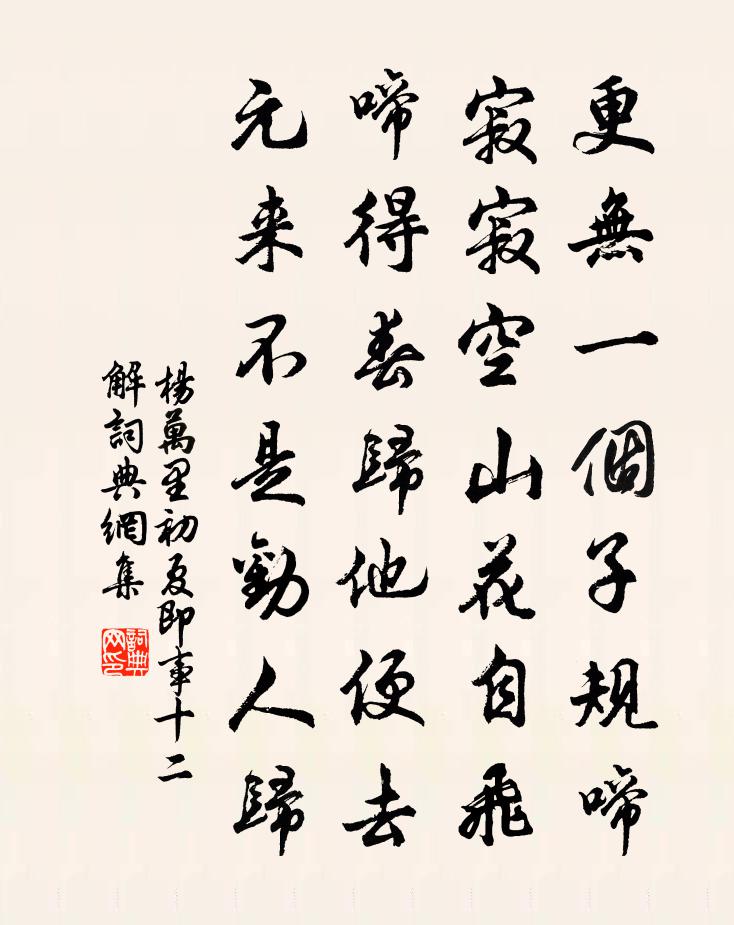 更無一個子規啼
寂寂空山花自飛
啼得春歸他便去
元来不是勸人歸
楊萬里初夏即事十二
解詞典網集
詞典网印